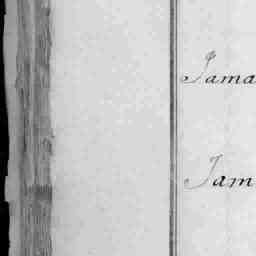 Jama
Jam